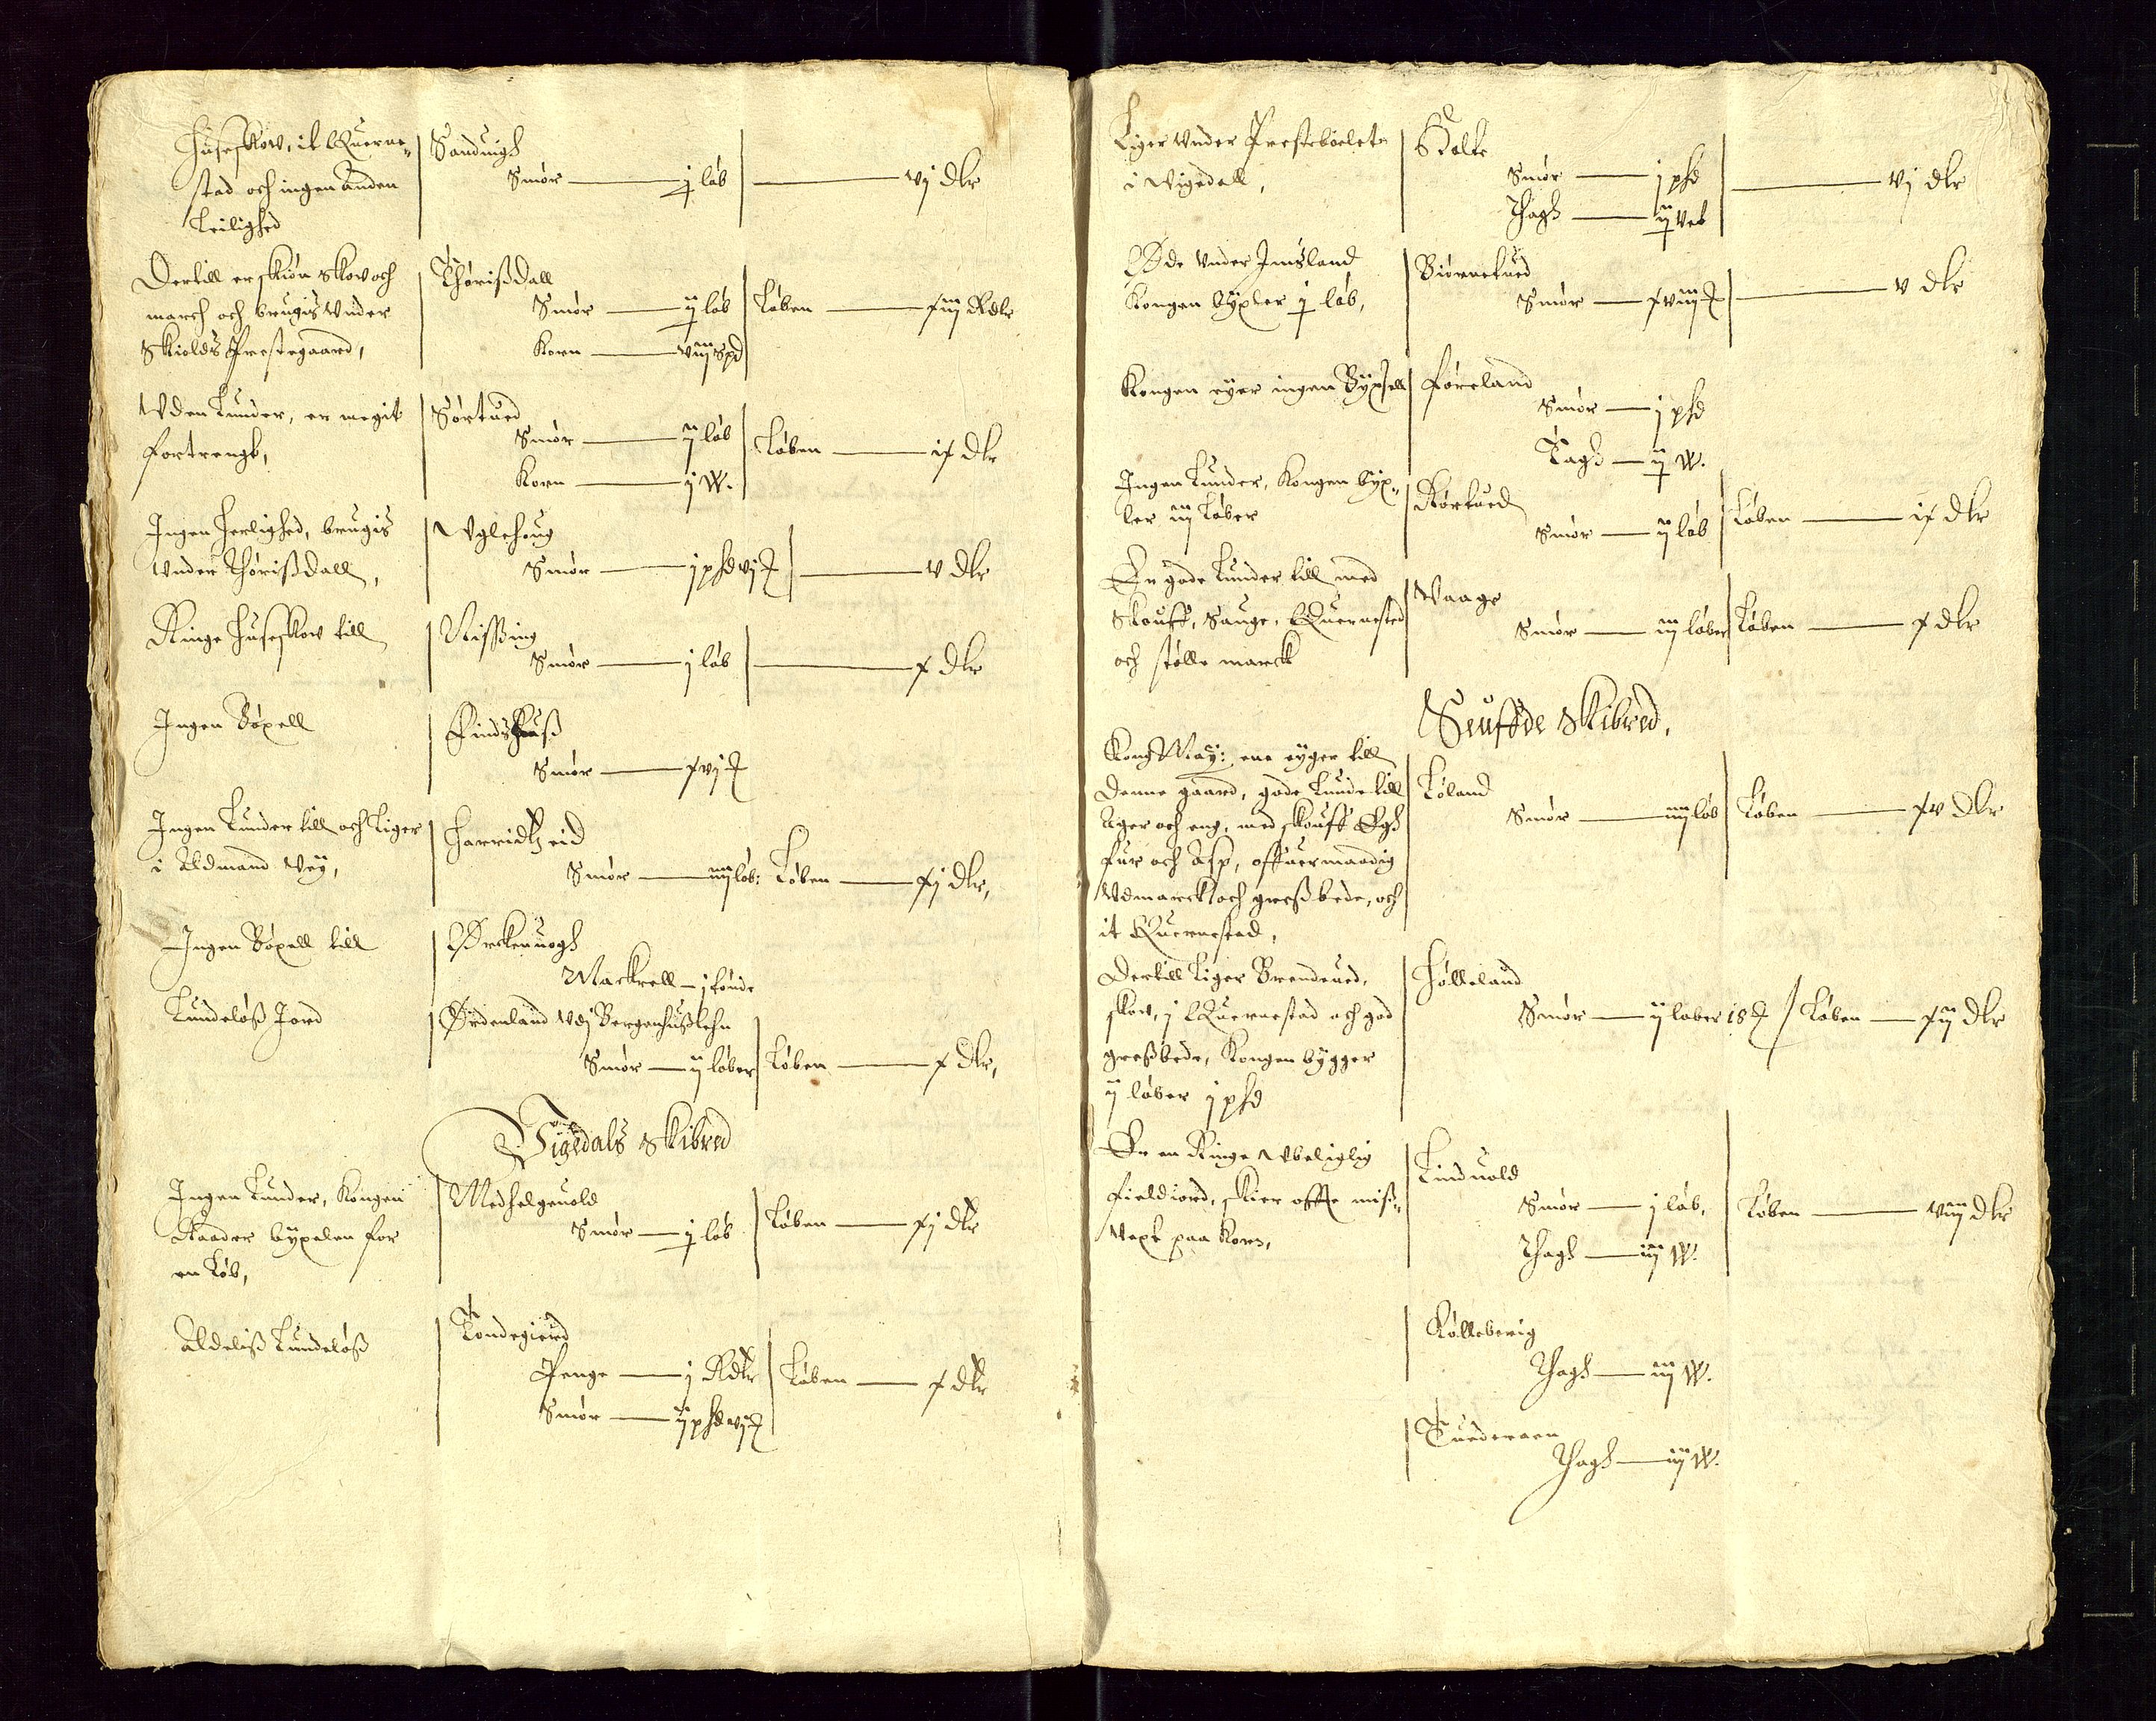 Huseskow, it Querne-
stad och ingen anden
Leilighed
Sanduigh
Smør — j løb — vj dlr
Dertill er skiøn skow och
march och brugis vnder
Skiolds Prestegaard,
Thørissdall
Smør — ij løb
Korn — viij spd
Løben — xiij Rdlr
Vden Lunder, er megit
fortrengt,
Sørtued
Smør — ij løb
Korn — j W.
Løben — ix dlr
Ingen herlighed, brugis
vnder Thørissdall,
Vglehoug
Smør — j phd vj — v dlr
Ringe Huseskow till
Nissing
Smør — j løb — x dlr
Ingen Bøxell
Findshuss
Smør — xvj
Ingen Lunder till och Liger
i Aldmand Vey,
Harridtzeid
Smør — iiij løb:
Løben — xj dlr,
Ingen Bøxell till
Ørckenuogh
Mackrell — j tønde
Lundeløss Jord
Ørdenland vdj Bergenhusslehn
Smør — ij løber
Løben — x dlr,
Vigedals Skibred
Ingen Lunder, Kongen
Raader byxelen for
en Løb,
Medhelgeuold
Smør — j løb
Løben — xj dlr
Aldeliss Lundeløss
Tondegierd
Penge — j Rdlr
Smør — ij phd vj
Løben — x dlr
Liger vnder Prestebolete
i Vigedall,
Holte
Smør — j phd
Thagh — ij Veb
— vj dlr
Øde vnder Imsland
Kongen byxler j løb,
Biørnetued
Smør — xviij
— v dlr
Kongen eyer ingen Byxell
Føreland
Smør — j phd
Tagh — ij W.
Ingen Lunder, Kongen byx-
ler iij Løber
Rørtued
Smør — ij løb
Løben — ix dlr
Er gode Lunder till med
Skouff, Sauge, Quernested
och stølle marck
Vaage
Smør — iij løber
Løben — x dlr
Seuffde Skibred,
Kong May: ene eyger till
denne gaard, gode Lunde till
Ager och eng, med skouff Egh
fur och Asp, offuermaadig
vdmarck och gressbede, och
it Quernestad,
Løland
Smør — iiij løb
Løben — xv dlr
Dertill Liger Brendeued,
skow, j Quernestad och god
gressbede, Kongen bygger
ij løber j phd
Hølleland
Smør — ij løber 18
Løben — xij dlr
Er en Ringe vbeliglig
fieldiord, skier offte miss-
vext paa Korn,
Linduold
Smør — j løb,
Thagh — iij W.
Løben — viij dlr
Kølleberig
Thagh — iij W.
Tuederaen
Thagh — iij W.